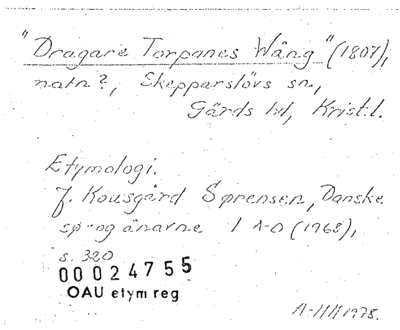 "Dragare Torpanes Wång" (1807),
natn?, Skepparslövs sn,
Gärds hd, Krist.l.
Etymologi.
J. Kousgård Sørensen, Danske
sø- og ånavne 1 A-D (1968),
s. 320
00024755
OAU etym reg
1978.